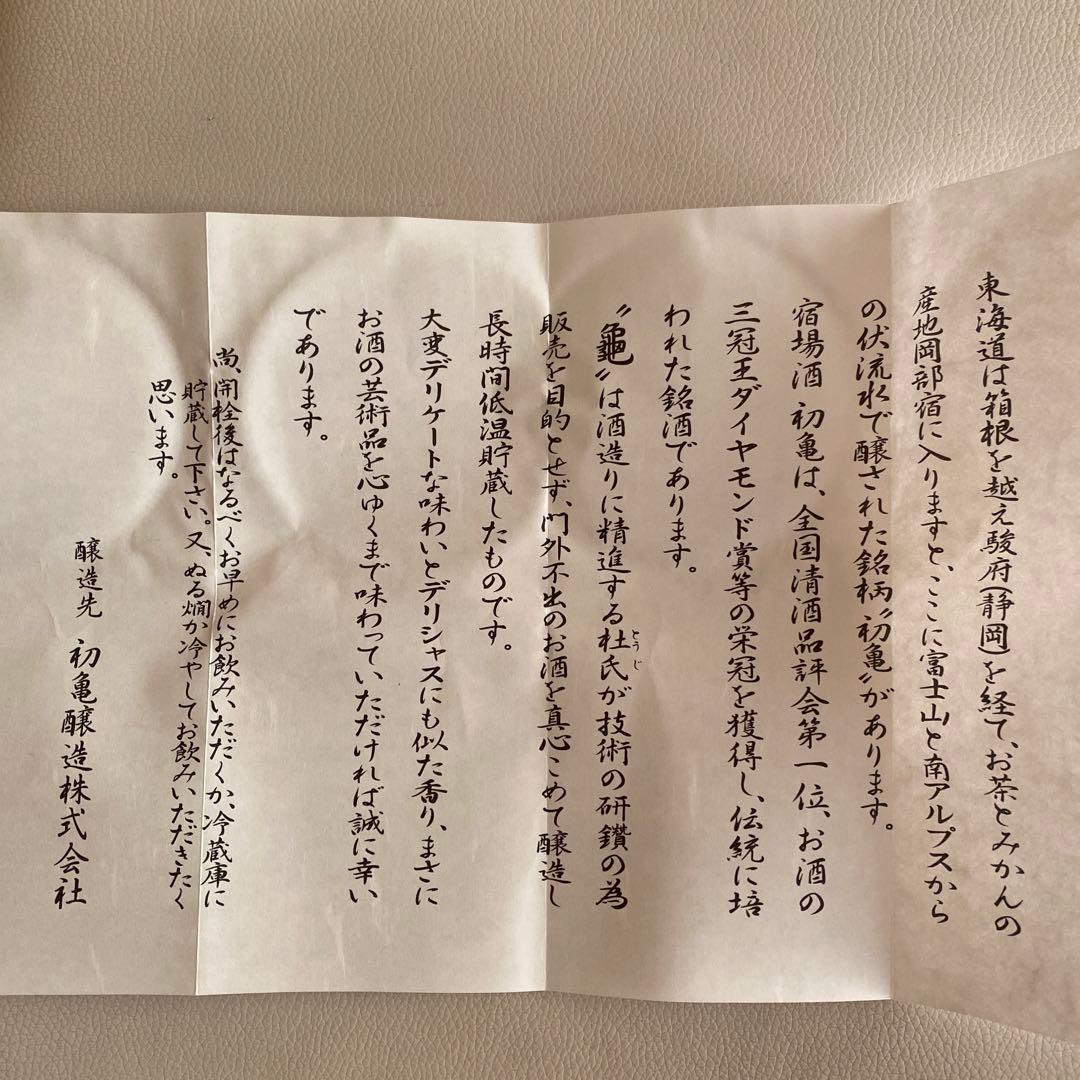 東海道は箱根を越え駿府(静岡)を経て、お茶とみかんの
産地岡部宿に入りますと、ここに富士山と南アルプスから
の伏流水で醸された銘柄〝初亀〟があります。
宿場酒 初亀は、全国清酒品評会第一位、お酒の
三冠王ダイヤモンド賞等の栄冠を獲得し、伝統に培
われた銘酒であります。
〝龜〟は酒造りに精進する杜氏が技術の研鑽の為
とうじ
販売を目的とせず、門外不出のお酒を真心こめて醸造し
長時間低温貯蔵したものです。
大変デリケートな味わいとデリシャスにも似た香り、まさに
お酒の芸術品を心ゆくまで味わっていただければ誠に幸い
であります。
尚、開栓後はなるべくお早めにお飲みいただくか、冷蔵庫に
貯蔵して下さい。又、ぬる燗か冷やしてお飲みいただきたく
思います。
醸造先 初亀醸造株式会社